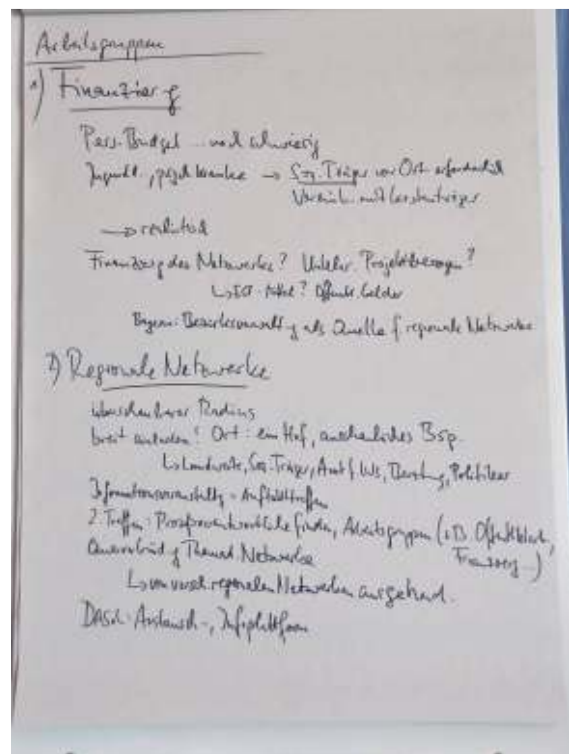 Arbeitsgruppen
1) Finanzierg
Pers. Budget noch schwierig
Jugendl., psych. kranke → Soz. Träger vor Ort erforderlich
Vereinb. mit Kostenträger
→
Finanzierg des Netzwerks? Projektbezogen?
↳ Mittel? Öffentl. Gelder
Bayern: Bezirksverwaltg als Quelle f. regionale Netzwerke
2) Regionale Netzwerke
überschaubarer Radius
breit einladen! Ort: ein Hof, anschauliches Bsp.
↳ Landwirte, Soz. Träger, Amt f. Lws, Beratung, Politiker
Informationsveranstaltg = Auftakttreffen
2. Treffen: finden, Arbeitsgruppen (z.B. Öffentlichk.,
Finanzierg...)
Themat. Netzwerke
↳ von versch. regionalen Netzwerken ausgehend.
DASoL: Austausch-, Infoplattform